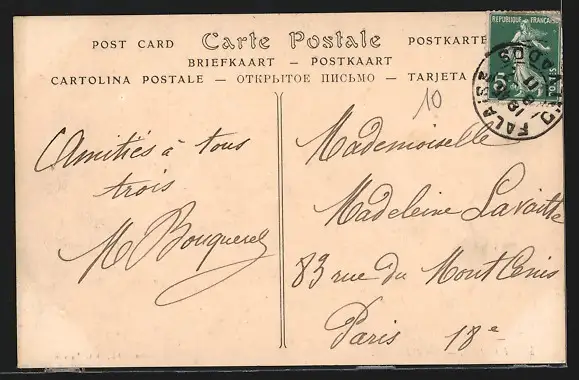 POST CARD Carte Postale POSTKARTE
BRIEFKAART — POSTKAART
CARTOLINA POSTALE — ОТКРЫТОЕ ПИСЬМО — TARJETA
REPUBLIQUE FRANÇAISE
5
POSTES
FALAISE
CALVADOS
10
Amitiés à tous
trois
M Bouquerel
Mademoiselle
Madeleine Lavaitte
83 rue du Mont Cenis
Paris 18e